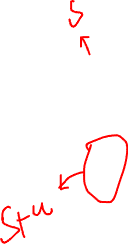 S
Stu